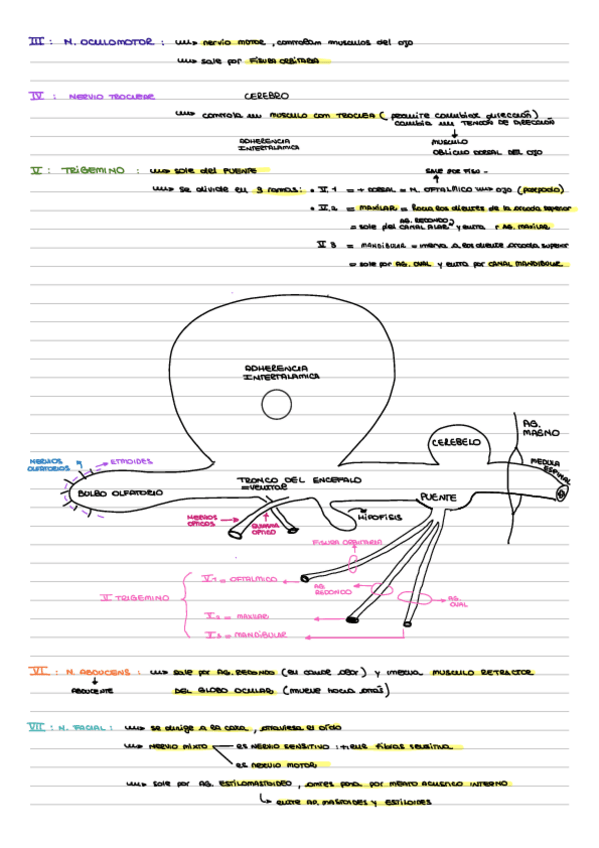 III : N. OCULOMOTOR : nervio motor, controlam musculos del ojo
sale por FISURA ORBITARIA
IV : NERVIO TROCLEAR CEREBRO
controla un MUSCULO CON TROCLEA ( permite cambiar dirección)
cambia un TENDON DE DIRECCIÓN
ADHERENCIA
INTERTALAMICA
MUSCULO
OBLICUO DORSAL DEL OJO
V : TRIGEMINO : sale del PUENTE
SALE POR FISU -
se divide en 3 ramas: • V.1 = + DORSAL = N. OFTALMICO ojo (parpado)
• V.2 = MAXILAR = hacia los dientes de la arcada superior
AG. REDONDO
= sale del CANAL ALAR y entra r AG. MAXILAR
V 3 = MANDIBULAR = inerva a los diente arcada superior
= sale por AG. OVAL y entra por CANAL MANDIBULAR
ADHERENCIA
INTERTALAMICA
AG.
MAGNO
CEREBELO
NERVIOS
OLFATORIOS
ETMOIDES
MEDULA
ESPINAL
BULBO OLFATORIO
TRONCO DEL ENCEFALO
=VENTOR
PUENTE
NERVIOS
OPTICOS
QUIASMA
OPTICO
HIPOFISIS
FISURA ORBITARIA
V1 = OFTALMICO
AG.
REDONDO
V TRIGEMINO
AG.
OVAL
V2 = MAXILAR
V3 = MANDIBULAR
VI : N. ABDUCENS : sale por AG. REDONDO (en canal alar) y inerva MUSCULO RETRACTOR
ABDUCENTE DEL GLOBO OCULAR (mueve hacia atrás)
VII : N. FACIAL : se dirige a la cara, atraviesa el oído
NERVIO MIXTO es NERVIO SENSITIVO : tiene fibras sensitiva
es NERVIO MOTOR
sale por AG. ESTILOMASTOIDEO, antes pasa por MEATO ACUSTICO INTERNO
entre AP. MASTOIDES y ESTILOIDES